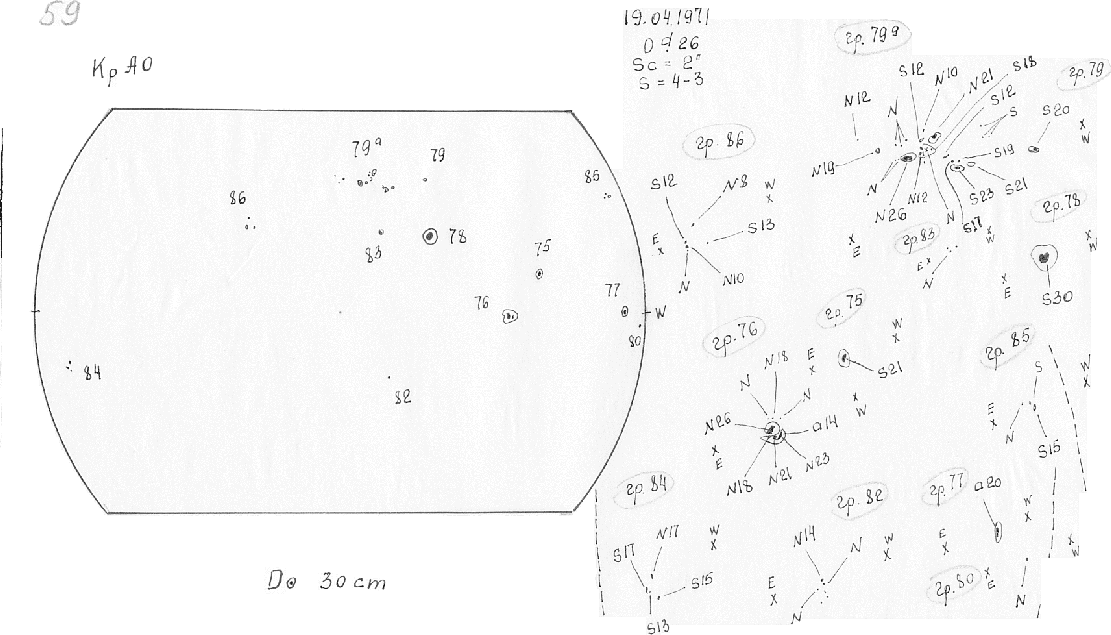 59
КрАО
79ª
79
86
85
83
78
75
76
77
W
80
84
82
D⊙ 30cm
19.04.1971
Sa = 2"
S = 4-3
гр. 79ª
S12
N10
N21
S18
S12
гр. 79
N12
N
S
S20
X
W
N19
S19
N
N26
N12
N
S17
S23
S21
гр. 86
S12
N8
W
X
S13
E
X
N
N10
X
E
гр 83
X
W
E X
N
гр. 78
X
W
X
E
S30
гр. 76
N18
E
X
N
N
N26
a14
X
W
X
E
N18
N21
N23
гр. 75
W
X
S21
гр. 85
S
W
X
E
X
N
S15
гр. 84
S17
N17
W
X
S15
S13
гр. 82
N14
N
W
X
E
X
N
гр. 77
a20
W
X
E
X
X
W
гр. 80
X
E
N